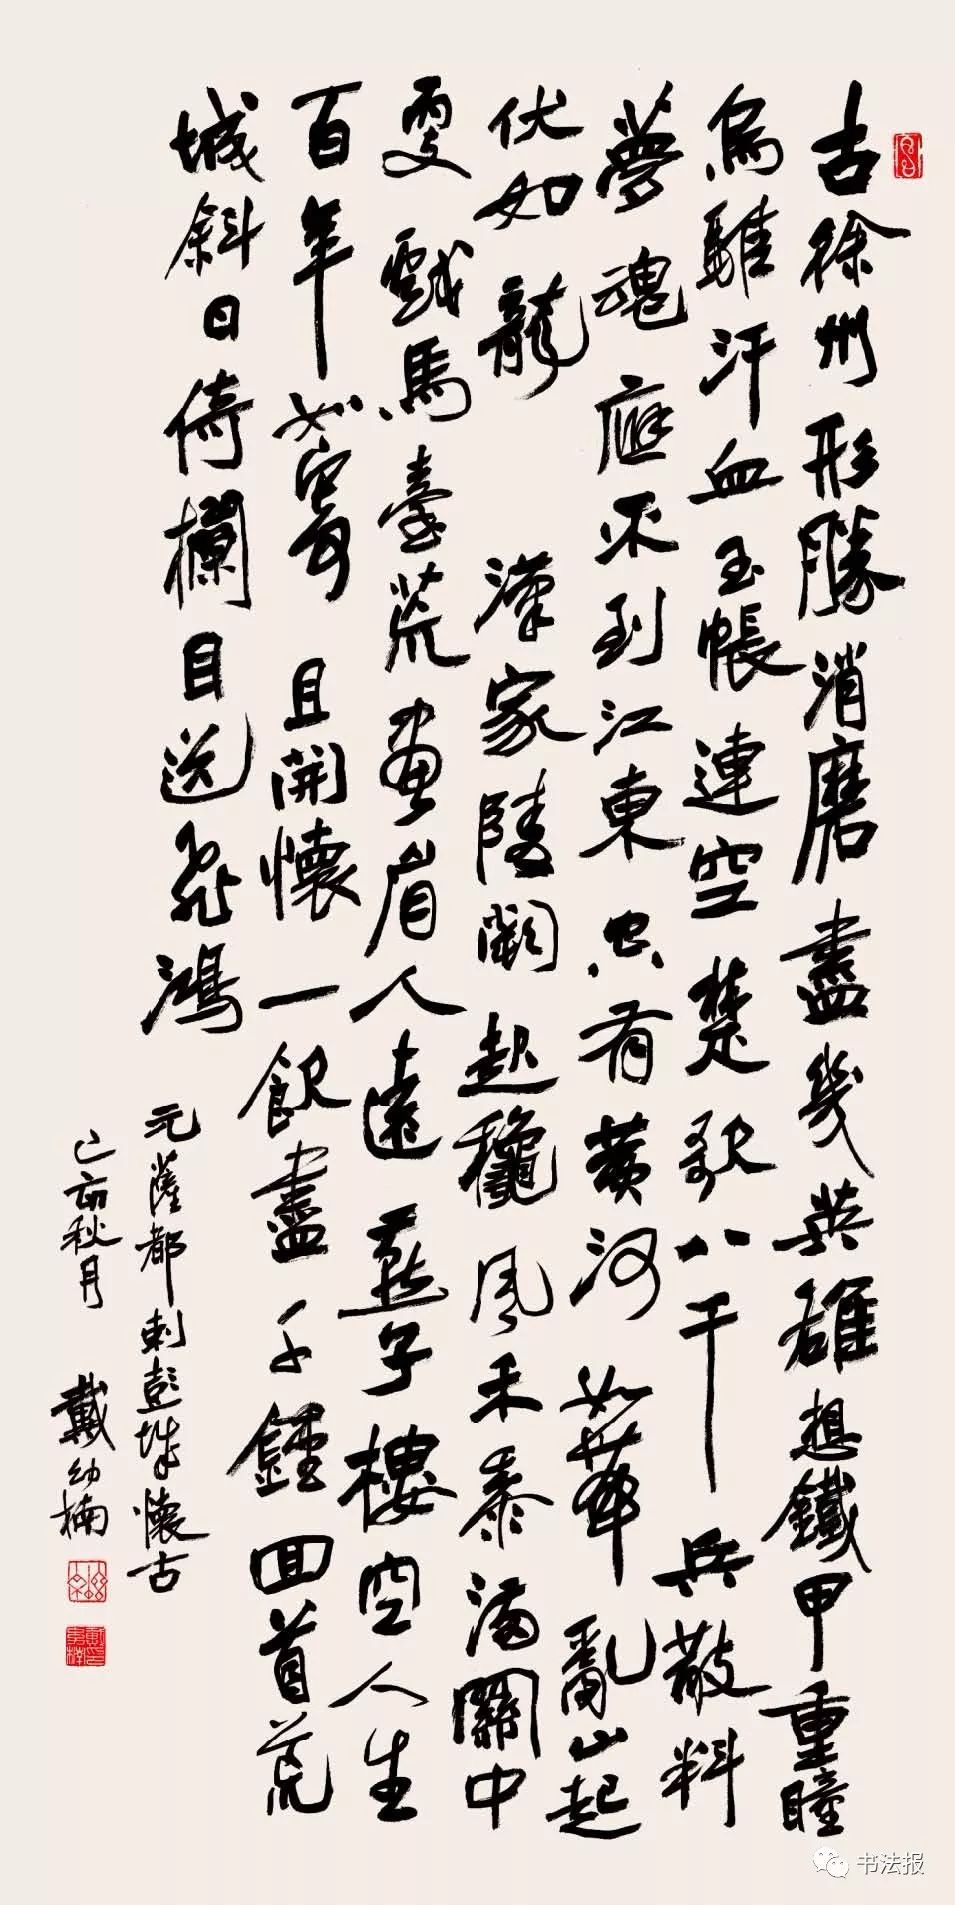 古徐州形勝消磨盡幾英雄想鐵甲重瞳
烏騅汗血玉帳連空楚歌八千兵散料
夢魂應不到江東空有黃河如帶亂山起
伏如龍漢家陵闕起穐風禾黍滿關中
更戲馬臺荒畫眉人遠燕子樓空人生
百年如寄且開懷一飲盡千鍾回首荒
城斜日倚欄目送飛鴻
元薩都剌彭城懷古
己亥秋月 戴幼楠
书法报